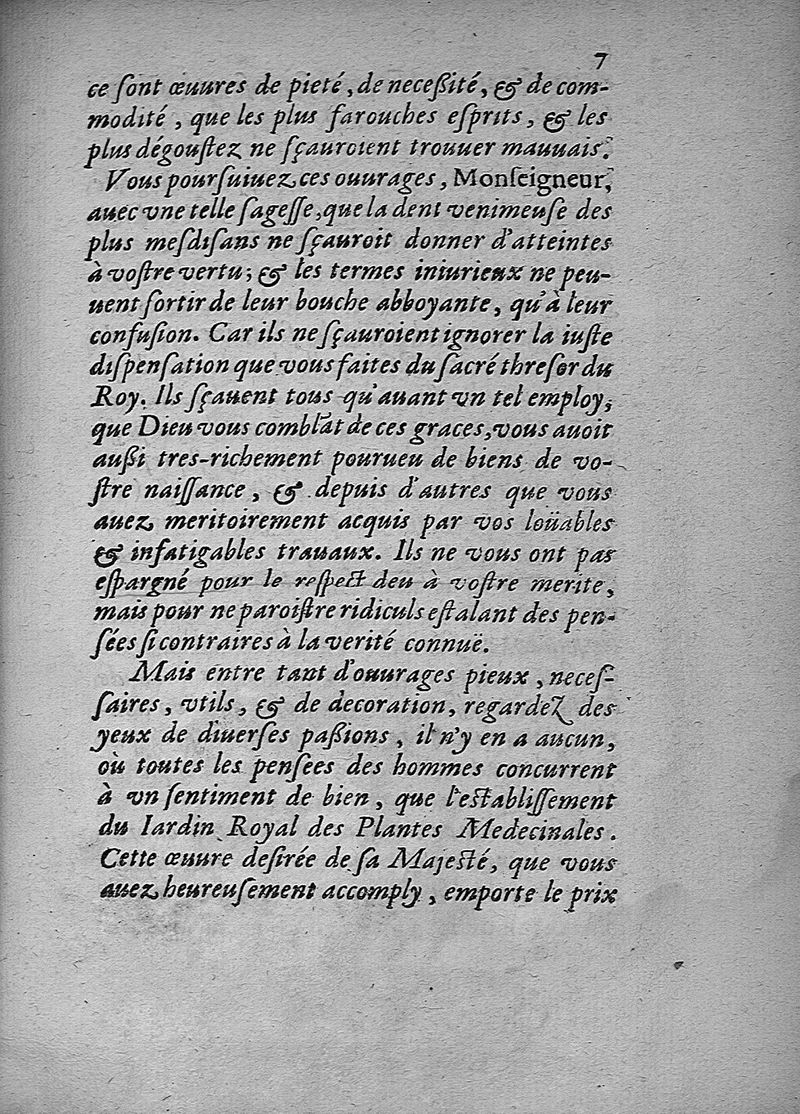 7
ce ſont œuures de pieté, de neceßité, & de com-
modité, que les plus farouches eſprits, & les
plus dégouſtez ne ſçauroient trouuer mauuais.
Vous pourſuiuez ces ouurages, Monſeigneur,
auec vne telle ſageſſe, que la dent venimeuſe des
plus meſdiſans ne ſçauroit donner d'atteintes
à voſtre vertu; & les termes iniurieux ne peu-
uent ſortir de leur bouche abboyante, qu'à leur
confuſion. Car ils ne ſçauroient ignorer la iuſte
diſpenſation que vous faites du ſacré threſor du
Roy. Ils ſçauent tous qu'auant vn tel employ,
que Dieu vous comblât de ces graces, vous auoit
außi tres-richement pourueu de biens de vo-
ſtre naiſſance, & depuis d'autres que vous
auez meritoirement acquis par vos loüables
& infatigables trauaux. Ils ne vous ont pas
eſpargné pour le reſpect deu à voſtre merite,
mais pour ne paroiſtre ridiculs eſtalant des pen-
ſées ſi contraires à la verité connuë.
Mais entre tant d'ouurages pieux, neceſ-
ſaires, vtils, & de decoration, regardez des
yeux de diuerſes paßions, il n'y en a aucun,
où toutes les penſees des hommes concurrent
à vn ſentiment de bien, que l'eſtabliſſement
du Iardin Royal des Plantes Medecinales.
Cette œuure deſirée de ſa Majeſté, que vous
auez heureuſement accomply, emporte le prix